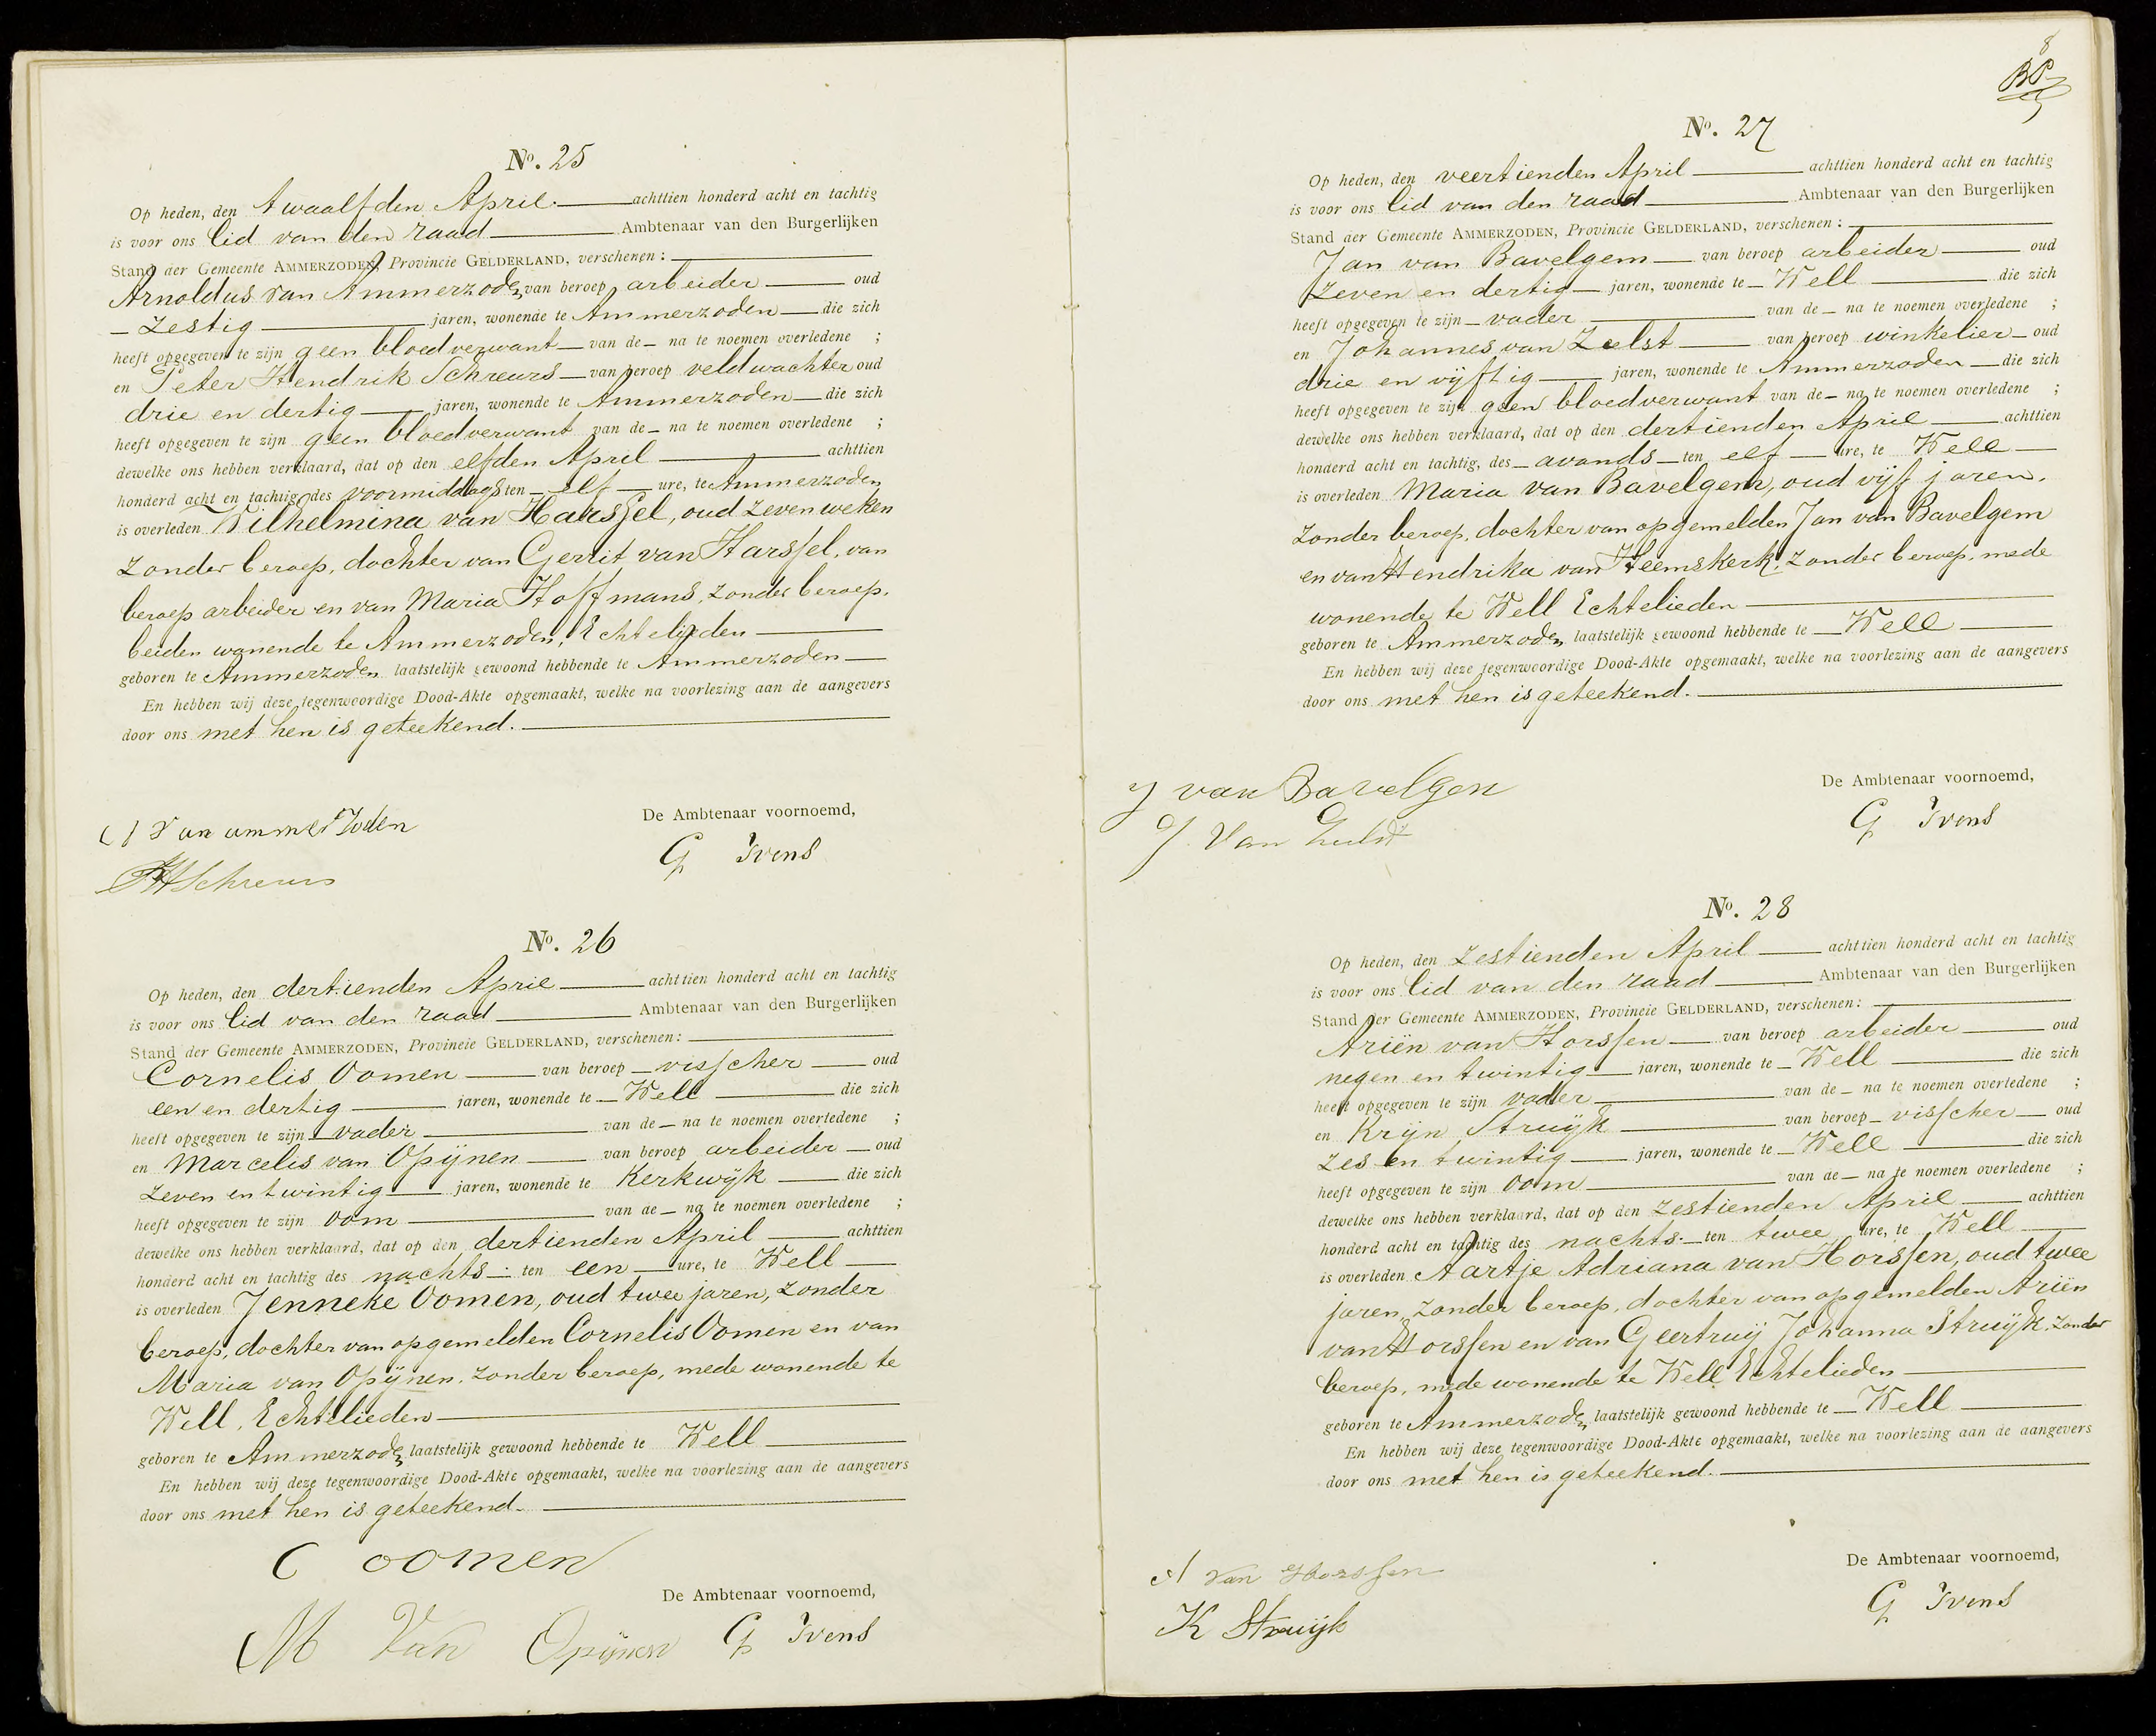 No. 25
Op heden, den twaalfden April achttien honderd acht en tachtig
is voor ons lid van den raad Ambtenaar van den Burgerlijken
Stand der Gemeente AMMERZODEN, Provincie GELDERLAND, verschenen:
Arnoldus van Ammerzoden van beroep arbeider oud
zestig jaren, wonende te Ammerzoden die zich
heeft opgegeven te zijn geen bloedverwant van de na te noemen overledene ;
en Peter Hendrik Schreurs van beroep veldwachter oud
drie en dertig jaren, wonende te Ammerzoden die zich
heeft opgegeven te zijn geen bloedverwant van de na te noemen overledene ;
dewelke ons hebben verklaard, dat op den elfden April achttien
honderd acht en tachtig des voormiddags ten elf ure, te Ammerzoden
is overleden Wilhelmina van Harssel, oud zeven weken
zonder beroep, dochter van Gerrit van Harssel, van
beroep arbeider en van Maria Hoffmans, zonder beroep,
beiden wonende te Ammerzoden, Echtelieden
geboren te Ammerzoden laatstelijk gewoond hebbende te Ammerzoden
En hebben wij deze tegenwoordige Dood-Akte opgemaakt, welke na voorlezing aan de aangevers
door ons met hen is geteekend.
De Ambtenaar voornoemd,
A van ammerzoden
G Ivens
PHSchreurs
No. 26
Op heden, den dertienden April achttien honderd acht en tachtig
is voor ons lid van den raad Ambtenaar van den Burgerlijken
Stand der Gemeente AMMERZODEN, Provincie GELDERLAND, verschenen:
Cornelis Oomen van beroep visscher oud
een en dertig jaren, wonende te Well die zich
heeft opgegeven te zijn vader van de na te noemen overledene ;
en Marcelis van Opijnen van beroep arbeider oud
zeven en twintig jaren, wonende te Kerkwijk die zich
heeft opgegeven te zijn oom van de na te noemen overledene ;
dewelke ons hebben verklaard, dat op den dertienden April achttien
honderd acht en tachtig des nachts ten een ure, te Well
is overleden Jenneke Oomen, oud twee jaren, zonder
beroep, dochter van opgemelden Cornelis Oomen en van
Maria van Opijnen, zonder beroep, mede wonende te
Well, Echtelieden
geboren te Ammerzoden laatstelijk gewoond hebbende te Well
En hebben wij deze tegenwoordige Dood-Akte opgemaakt, welke na voorlezing aan de aangevers
door ons met hen is geteekend.
C oomen
De Ambtenaar voornoemd,
M Van Opijnen G Ivens
8
No. 27
Op heden, den veertienden April achttien honderd acht en tachtig
is voor ons lid van den raad Ambtenaar van den Burgerlijken
Stand der Gemeente AMMERZODEN, Provincie GELDERLAND, verschenen:
Jan van Bavelgem van beroep arbeider oud
zeven en dertig jaren, wonende te Well die zich
heeft opgegeven te zijn vader van de na te noemen overledene ;
en Johannes van Zeelst van beroep winkelier oud
drie en vijftig jaren, wonende te Ammerzoden die zich
heeft opgegeven te zijn geen bloedverwant van de na te noemen overledene ;
dewelke ons hebben verklaard, dat op den dertienden April achttien
honderd acht en tachtig, des avonds ten elf ure, te Well
is overleden Maria van Bavelgem, oud vijf jaren,
zonder beroep, dochter van opgemelden Jan van Bavelgem
en van Hendrika van Heemskerk, zonder beroep, mede
wonende te Well Echtelieden
geboren te Ammerzoden laatstelijk gewoond hebbende te Well
En hebben wij deze tegenwoordige Dood-Akte opgemaakt, welke na voorlezing aan de aangevers
door ons met hen is geteekend.
De Ambtenaar voornoemd,
J van Bavelgen
G Ivens
J. Van
No. 28
Op heden, den zestienden April achttien honderd acht en tachtig
is voor ons lid van den raad Ambtenaar van den Burgerlijken
Stand der Gemeente AMMERZODEN, Provincie GELDERLAND, verschenen:
Ariën van Horssen van beroep arbeider oud
negen en twintig jaren, wonende te Well die zich
heeft opgegeven te zijn vader van de na te noemen overledene ;
en Krijn Struijk van beroep visscher oud
zes en twintig jaren, wonende te Well die zich
heeft opgegeven te zijn oom van de na te noemen overledene ;
dewelke ons hebben verklaard, dat op den zestienden April achttien
honderd acht en tachtig des nachts ten twee ure, te Well
is overleden Aartje Adriana van Horssen, oud twee
jaren, zonder beroep, dochter van opgemelden Ariën
van Horssen en van Geertruij Johanna Struijk, zonder
beroep, mede wonende te Well Echtelieden
geboren te Ammerzoden laatstelijk gewoond hebbende te Well
En hebben wij deze tegenwoordige Dood-Akte opgemaakt, welke na voorlezing aan de aangevers
door ons met hen is geteekend.
De Ambtenaar voornoemd,
A van Horssen
G Ivens
K Struijk